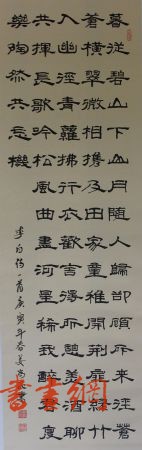 暮從碧山下山月隨人歸卻顧所來徑蒼
蒼橫翠微相攜及田家童稚開荊扉綠竹
入幽徑青蘿拂行衣歡言得所憩美酒聊
共揮長歌吟松風曲盡河星稀我醉君復
樂陶然共忘機
李白詩一首庚寅年春姜